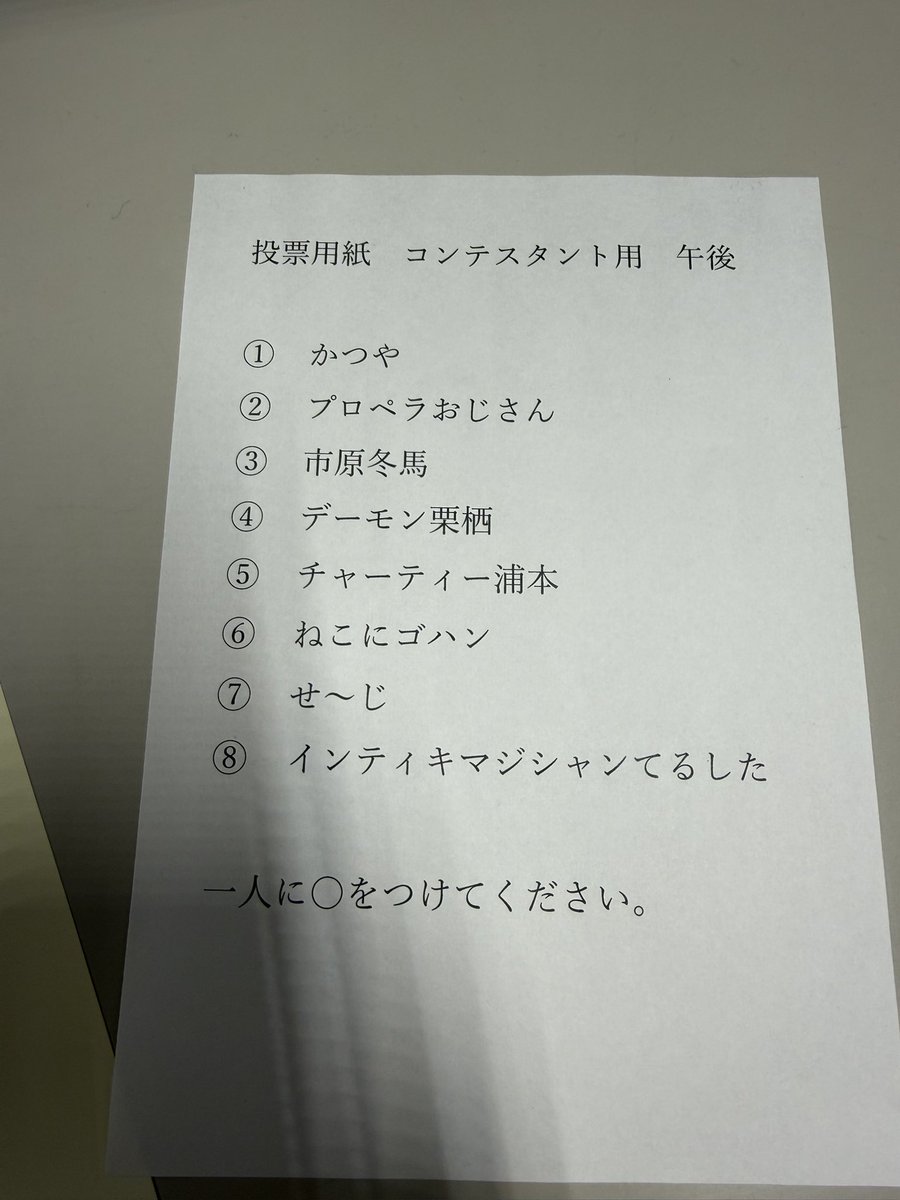 投票用紙　コンテスタント用　午後
①　かつや
②　プロペラおじさん
③　市原冬馬
④　デーモン栗栖
⑤　チャーティー浦本
⑥　ねこにゴハン
⑦　せ～じ
⑧　インティキマジシャンてるした
一人に○をつけてください。